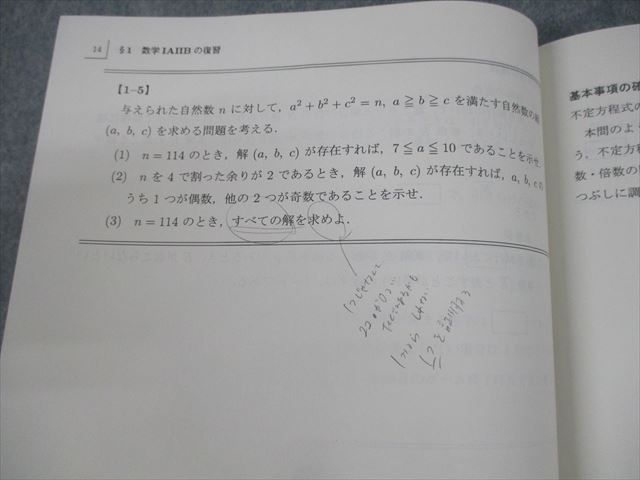 14 §1 数学IAIIBの復習
【1–5】
与えられた自然数 n に対して, a²+b²+c²=n, a≧b≧c を満たす自然数の組
(a, b, c) を求める問題を考える.
(1) n=114 のとき, 解 (a, b, c) が存在すれば, 7≦a≦10 であることを示せ.
(2) n を 4 で割った余りが 2 であるとき, 解 (a, b, c) が存在すれば, a, b, c の
うち 1 つが偶数, 他の 2 つが奇数であることを示せ.
(3) n=114 のとき, すべての解を求めよ.
基本事項の確
不定方程式の
本問のよう
う. 不定方
数・倍数の
つぶしに調